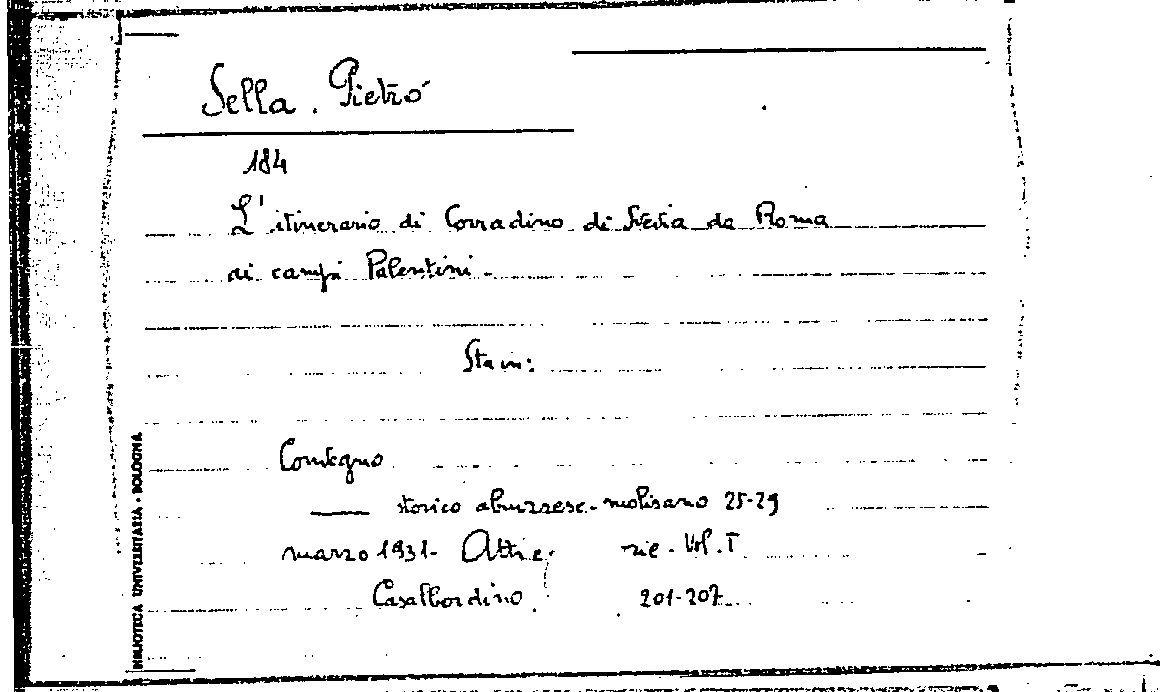 Sella. Pietro
184
L'itinerario di Corradino di Svevia da Roma
ai campi Palentini.
Sta in:
Convegno
storico abruzzese-molisano 25-29
marzo 1931- Atti e
Vol. I
Casalbordino 201-207
BIBLIOTECA UNIVERSITARIA - BOLOGNA